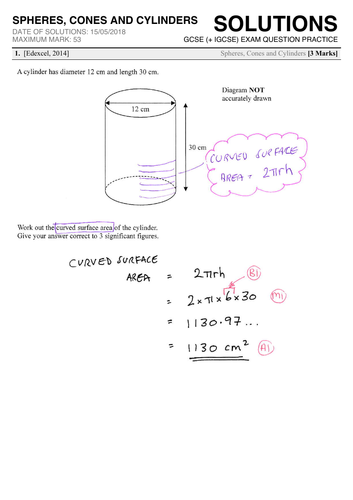 SPHERES, CONES AND CYLINDERS
SOLUTIONS
DATE OF SOLUTIONS: 15/05/2018
MAXIMUM MARK: 53
GCSE (+ IGCSE) EXAM QUESTION PRACTICE
1. [Edexcel, 2014]
Spheres, Cones and Cylinders [3 Marks]
A cylinder has diameter 12 cm and length 30 cm.
Diagram NOT
accurately drawn
12 cm
30 cm
CURVED SURFACE
AREA = 2πrh
Work out the curved surface area of the cylinder.
Give your answer correct to 3 significant figures.
CURVED SURFACE
AREA = 2πrh B1
= 2×π×6×30 M1
= 1130.97...
= 1130 cm² A1